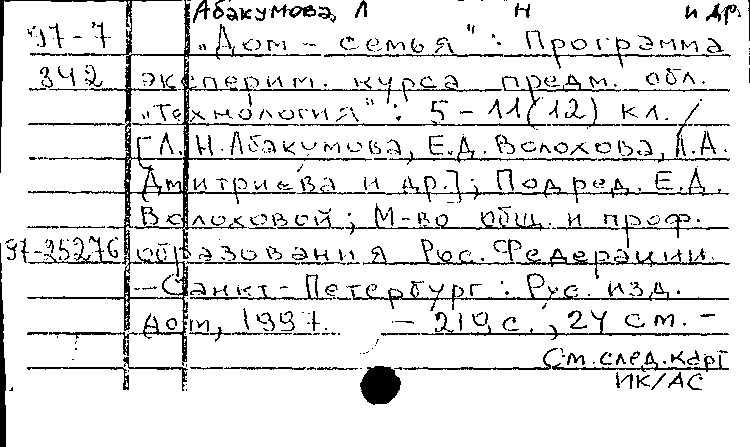 Абакумова, Л Н и др.
97-7 „Дом – семья“: Программа
342 эксперим. курса предм. обл.
„Технология“: 5 – 11(12) кл. /
[Л.Н.Абакумова, Е.Д.Волохова, Л.А.
Дмитриева и др.]; Под ред. Е.Д.
Волоховой; М-во общ. и проф.
97-25276 образования Рос. Федерации.
– Санкт-Петербург: Рус. изд.
дом, 1997. – 219 с.; 24 см. –
См. след. карт
ИК/АС